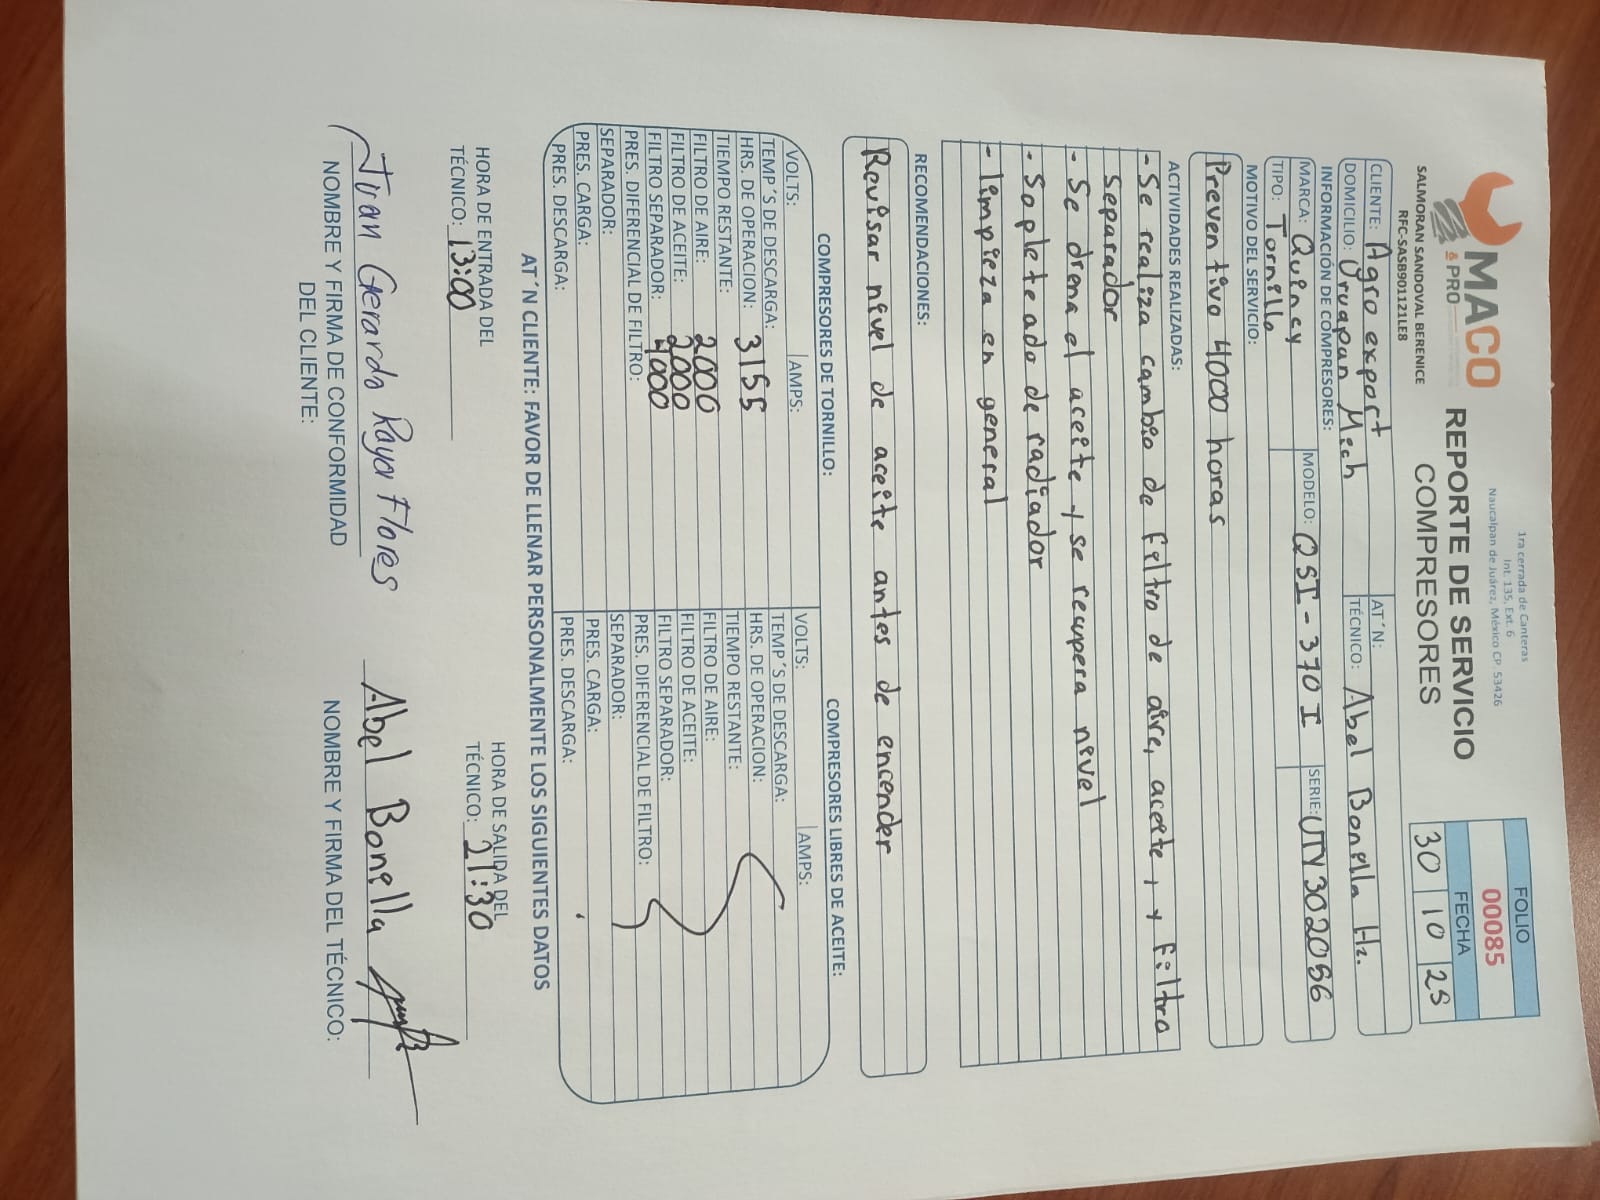 MACO
& PRO
SALMORAN SANDOVAL BERENICE
RFC-SASB901121LE8
REPORTE DE SERVICIO
COMPRESORES
1ra cerrada de Canteras
Int. 135, Ext. 6
Naucalpan de Juárez, México CP 53426
FOLIO
00085
FECHA
30 10 25
CLIENTE: Agro export
AT´N:
DOMICILIO: Uruapan Mich
TÉCNICO: Abel Bonilla Hz.
INFORMACIÓN DE COMPRESORES:
MARCA: Quincy
MODELO: QSI-370 I
SERIE: UTY302056
TIPO: Tornillo
MOTIVO DEL SERVICIO:
Preventivo 4000 horas
ACTIVIDADES REALIZADAS:
- Se realiza cambio de filtro de aire, aceite, y filtro
separador
- Se drena el aceite y se recupera nivel
- Sopleteado de radiador
- limpieza en general
RECOMENDACIONES:
Revisar nivel de aceite antes de encender
COMPRESORES DE TORNILLO:
VOLTS: AMPS:
TEMP´S DE DESCARGA:
HRS. DE OPERACION: 3155
TIEMPO RESTANTE:
FILTRO DE AIRE: 2000
FILTRO DE ACEITE: 2000
FILTRO SEPARADOR: 4000
PRES. DIFERENCIAL DE FILTRO:
SEPARADOR:
PRES. CARGA:
PRES. DESCARGA:
COMPRESORES LIBRES DE ACEITE:
VOLTS: AMPS:
TEMP´S DE DESCARGA:
HRS. DE OPERACION:
TIEMPO RESTANTE:
FILTRO DE AIRE:
FILTRO DE ACEITE:
FILTRO SEPARADOR:
PRES. DIFERENCIAL DE FILTRO:
SEPARADOR:
PRES. CARGA:
PRES. DESCARGA:
AT´N CLIENTE: FAVOR DE LLENAR PERSONALMENTE LOS SIGUIENTES DATOS
HORA DE ENTRADA DEL
TÉCNICO: 13:00
HORA DE SALIDA DEL
TÉCNICO: 21:30
Juan Gerardo Flores
NOMBRE Y FIRMA DE CONFORMIDAD
DEL CLIENTE:
Abel Bonilla
NOMBRE Y FIRMA DEL TÉCNICO: